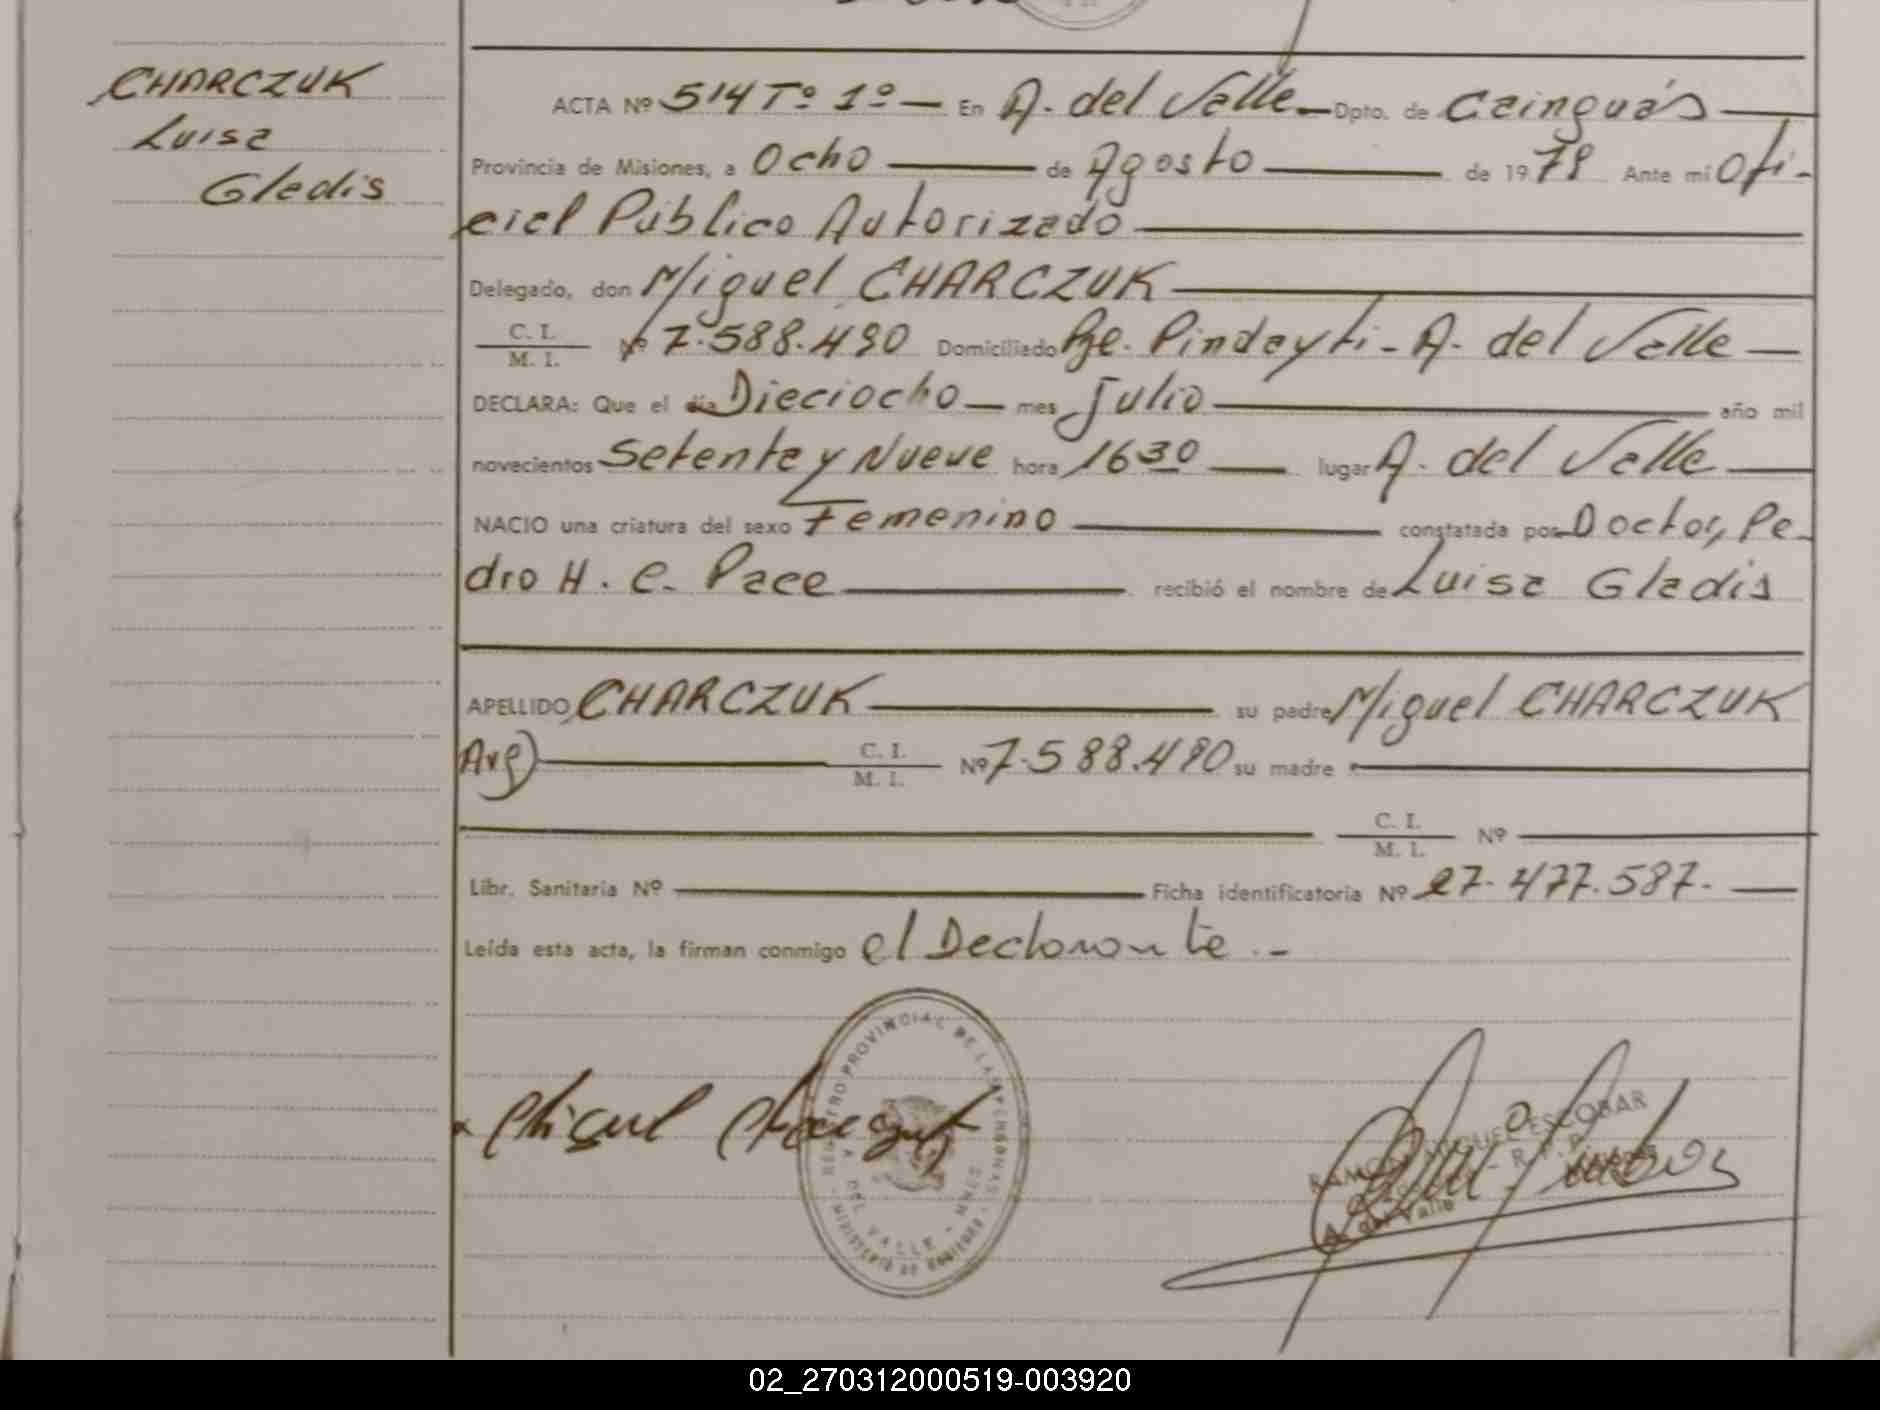 CHARCZUK
Luisa
Gladis
ACTA Nº 514 Tº 1º — En A. del Valle — Dpto. de Cainguás
Provincia de Misiones, a Ocho de Agosto de 1979 Ante mi Ofi-
cial Público Autorizado
Delegado, don Miguel CHARCZUK
C. I.
M. I. Nº 7.588.490 Domiciliado Pje. Pindayti - A. del Valle
DECLARA: Que el día Dieciocho — mes Julio año mil
novecientos Setenta y Nueve hora 1630 lugar A. del Valle
NACIO una criatura del sexo Femenino constatada por Doctor, Pe-
dro H. C. Pace recibió el nombre de Luisa Gladis
APELLIDO CHARCZUK su padre Miguel CHARCZUK
Arg) C. I.
M. I. Nº 7.588.490 su madre
C. I.
M. I. Nº
Libr. Sanitaria Nº Ficha identificatoria Nº 27.477.587.-
Leída esta acta, la firman conmigo el Declarante.-
REGISTRO PROVINCIAL DE LAS PERSONAS
A. DEL VALLE - MNES
RAMON MIGUEL ESCOBAR
A. del Valle
02_270312000519-003920